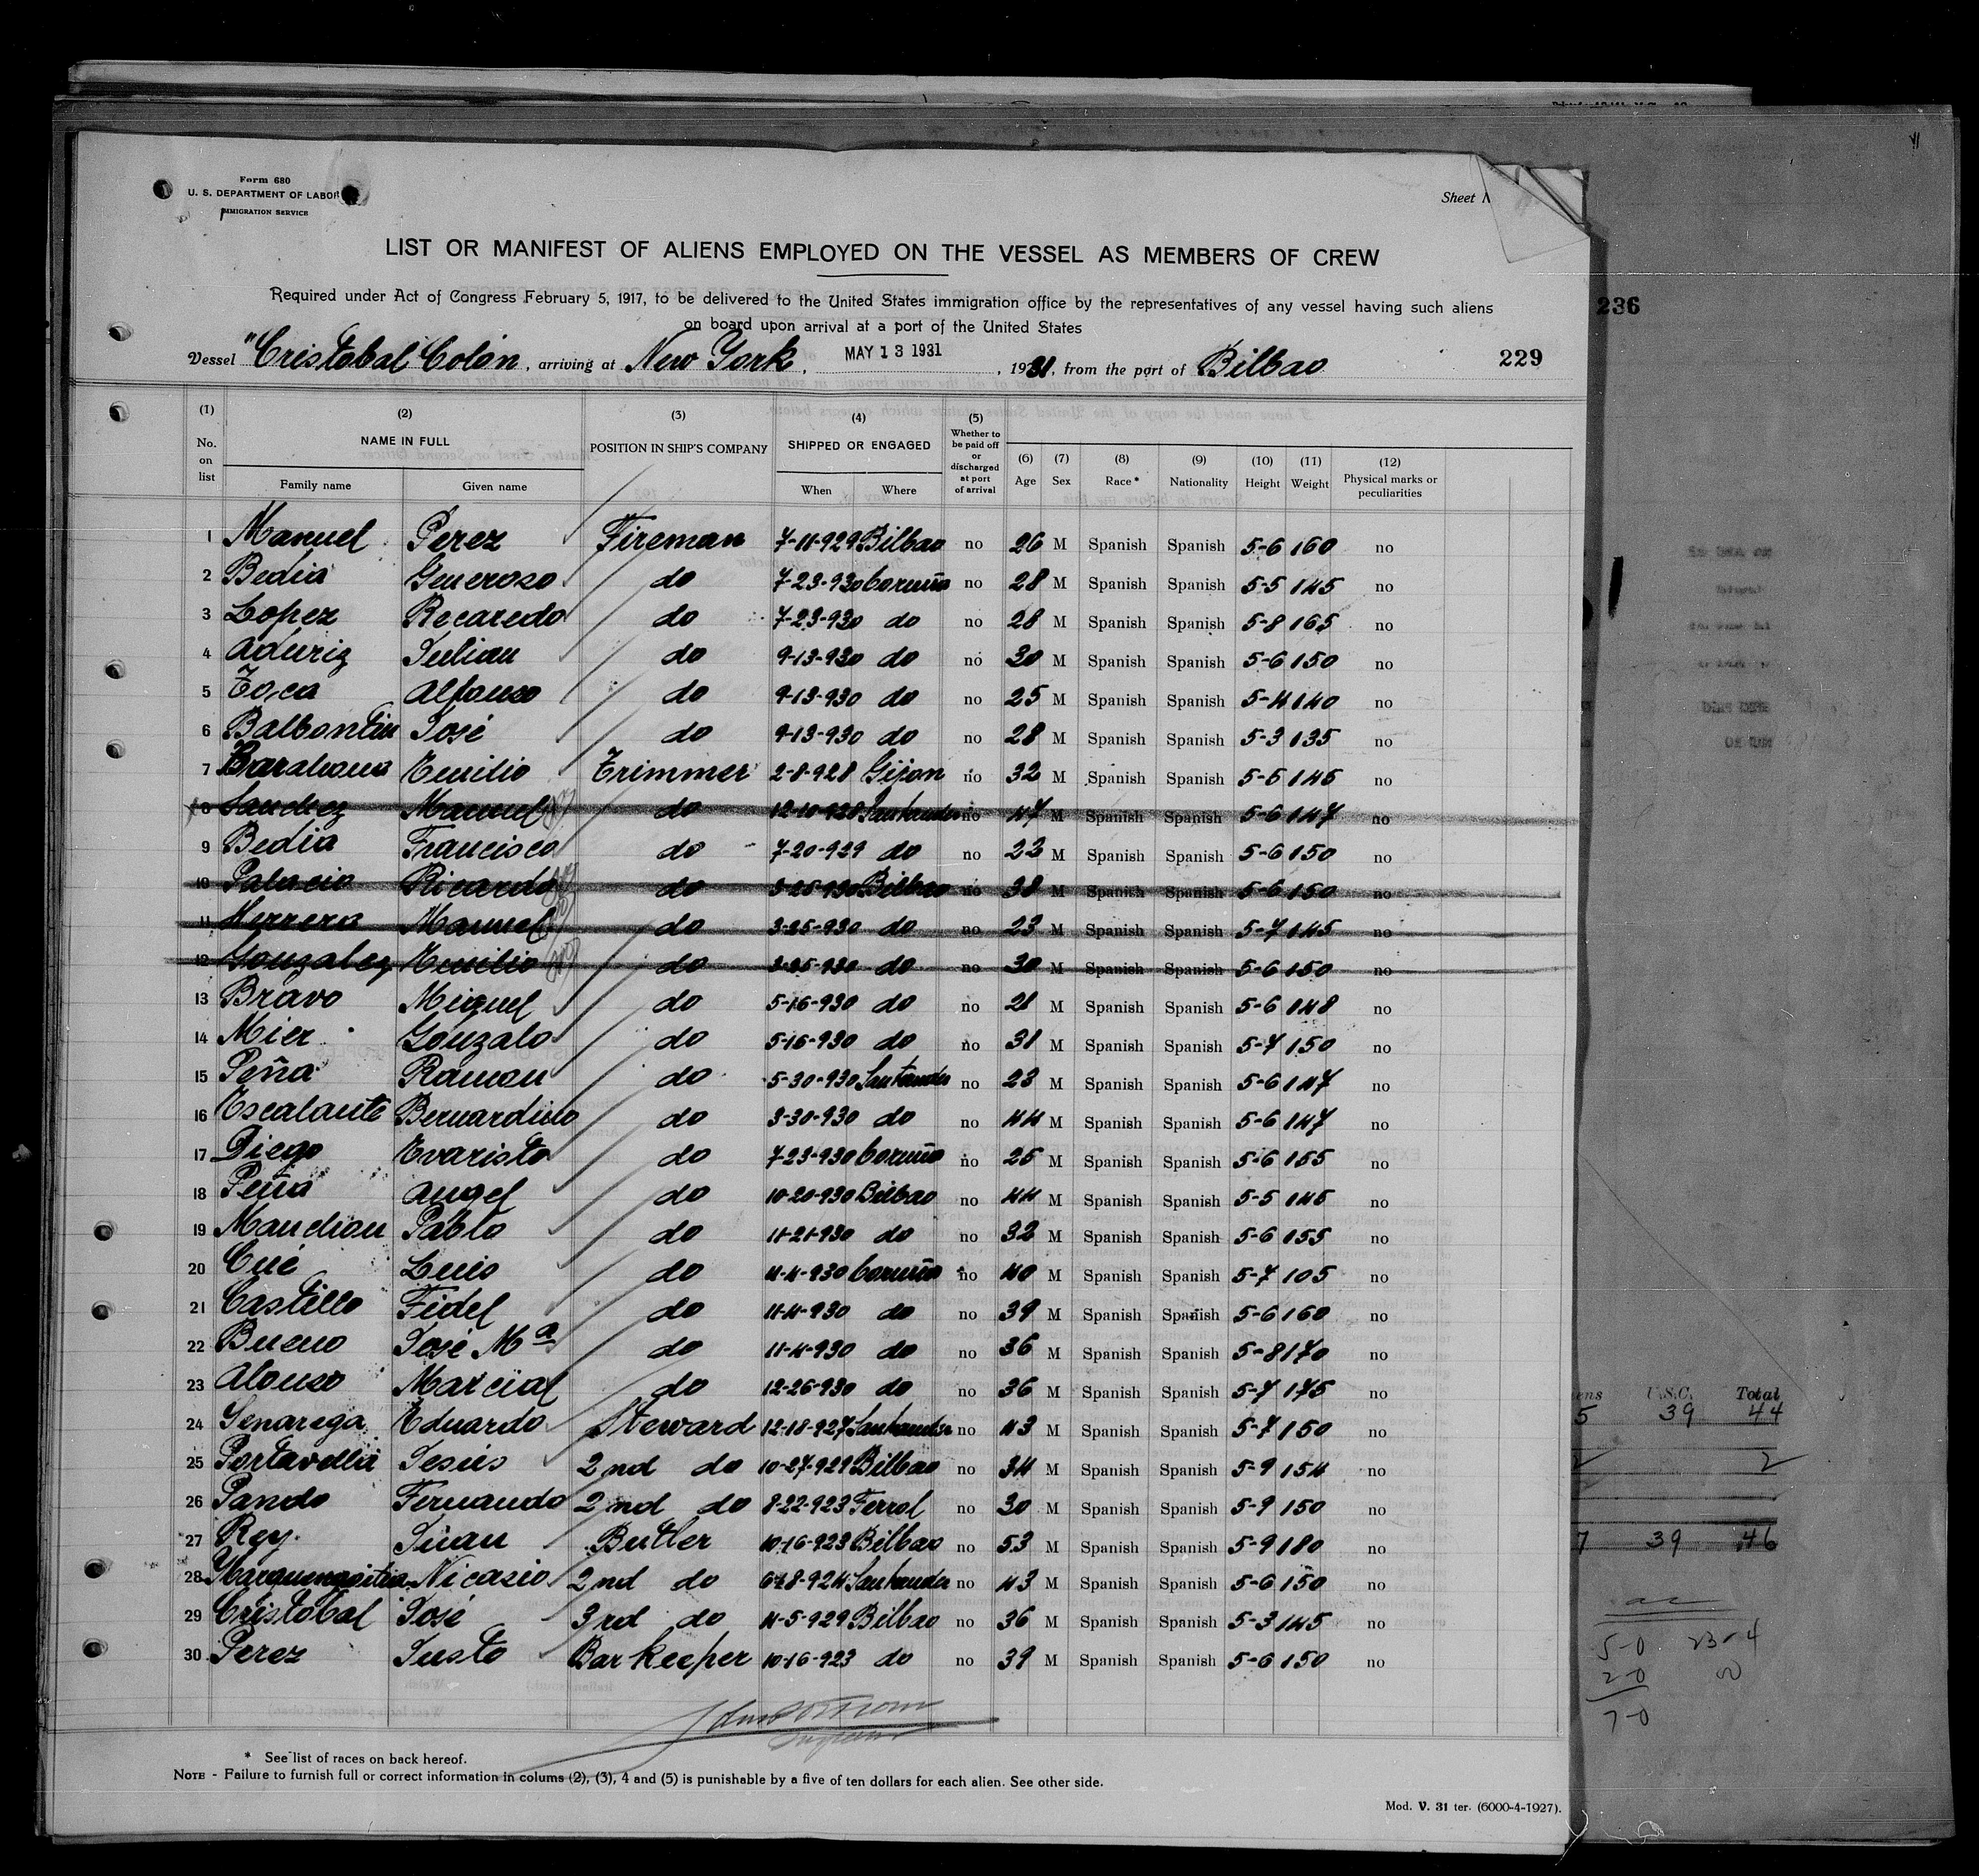 Form 680
U. S. DEPARTMENT OF LABOR
IMMIGRATION SERVICE
Sheet N
LIST OR MANIFEST OF ALIENS EMPLOYED ON THE VESSEL AS MEMBERS OF CREW
Required under Act of Congress February 5, 1917, to be delivered to the United States immigration office by the representatives of any vessel having such aliens
on board upon arrival at a port of the United States
236
Vessel "Cristobal Colón, arriving at New York, MAY 13 1931, 1931, from the port of Bilbao 229
(1) No. on list (2) NAME IN FULL Family name Given name (3) POSITION IN SHIP'S COMPANY (4) SHIPPED OR ENGAGED When Where (5) Whether to be paid off or discharged at port of arrival (6) Age (7) Sex (8) Race* (9) Nationality (10) Height (11) Weight (12) Physical marks or peculiarities
1 Manuel Perez Fireman 7-11-929 Bilbao no 26 M Spanish Spanish 5-6 160 no
2 Bedia Generoso do 7-23-930 Coruña no 28 M Spanish Spanish 5-5 145 no
3 Lopez Recaredo do 7-23-930 do no 28 M Spanish Spanish 5-8 165 no
4 Aduriz Julian do 9-13-930 do no 30 M Spanish Spanish 5-6 150 no
5 Toca Alfonso do 9-13-930 do no 25 M Spanish Spanish 5-4 140 no
6 Balbontin José do 9-13-930 do no 28 M Spanish Spanish 5-3 135 no
7 Barahona Emilio Trimmer 2-8-928 Gijon no 32 M Spanish Spanish 5-6 146 no
8 Sanchez Manuel do 12-10-928 Santander no 47 M Spanish Spanish 5-6 147 no
9 Bedia Francisco do 7-20-929 do no 22 M Spanish Spanish 5-6 150 no
10 Palacio Ricardo do 3-25-930 Bilbao no 38 M Spanish Spanish 5-6 150 no
11 Herrera Manuel do 3-25-930 do no 23 M Spanish Spanish 5-7 145 no
12 Gonzalez Emilio do 3-25-930 do no 30 M Spanish Spanish 5-6 150 no
13 Bravo Miguel do 5-16-930 do no 28 M Spanish Spanish 5-6 148 no
14 Mier Gonzalo do 5-16-930 do no 31 M Spanish Spanish 5-7 150 no
15 Peña Ramon do 5-30-930 Santander no 23 M Spanish Spanish 5-6 147 no
16 Escalante Bernardino do 3-30-930 do no 44 M Spanish Spanish 5-6 147 no
17 Diego Evaristo do 7-23-930 Coruña no 26 M Spanish Spanish 5-6 155 no
18 Peña Angel do 10-20-930 Bilbao no 44 M Spanish Spanish 5-5 145 no
19 Mandiou Pablo do 11-21-930 do no 32 M Spanish Spanish 5-6 155 no
20 Cué Luis do 11-4-930 Coruña no 40 M Spanish Spanish 5-7 105 no
21 Castillo Fidel do 11-4-930 do no 39 M Spanish Spanish 5-6 160 no
22 Bueno José Mª do 11-4-930 do no 36 M Spanish Spanish 5-8 170 no
23 Alonso Marcial do 12-26-930 do no 36 M Spanish Spanish 5-7 175 no
24 Senarega Eduardo Steward 12-18-927 Santander no 43 M Spanish Spanish 5-7 150 no
25 Portavella Jesús 2nd do 10-27-929 Bilbao no 34 M Spanish Spanish 5-9 154 no
26 Pando Fernando 2nd do 8-22-923 Ferrol no 30 M Spanish Spanish 5-9 150 no
27 Rey Juan Butler 10-16-923 Bilbao no 53 M Spanish Spanish 5-9 180 no
28 Nicasio 2nd do 6-18-924 Santander no 43 M Spanish Spanish 5-6 150 no
29 Cristobal José 3rd do 4-5-929 Bilbao no 36 M Spanish Spanish 5-3 145 no
30 Perez Justo Barkeeper 10-16-923 do no 39 M Spanish Spanish 5-6 150 no
* See list of races on back hereof.
NOTE - Failure to furnish full or correct information in colums (2), (3), 4 and (5) is punishable by a five of ten dollars for each alien. See other side.
Mod. V. 31 ter. (6000-4-1927).
ens U.S.C. Total
5 39 44
2 2
7 39 46
5-0 23-4
2-0
7-0